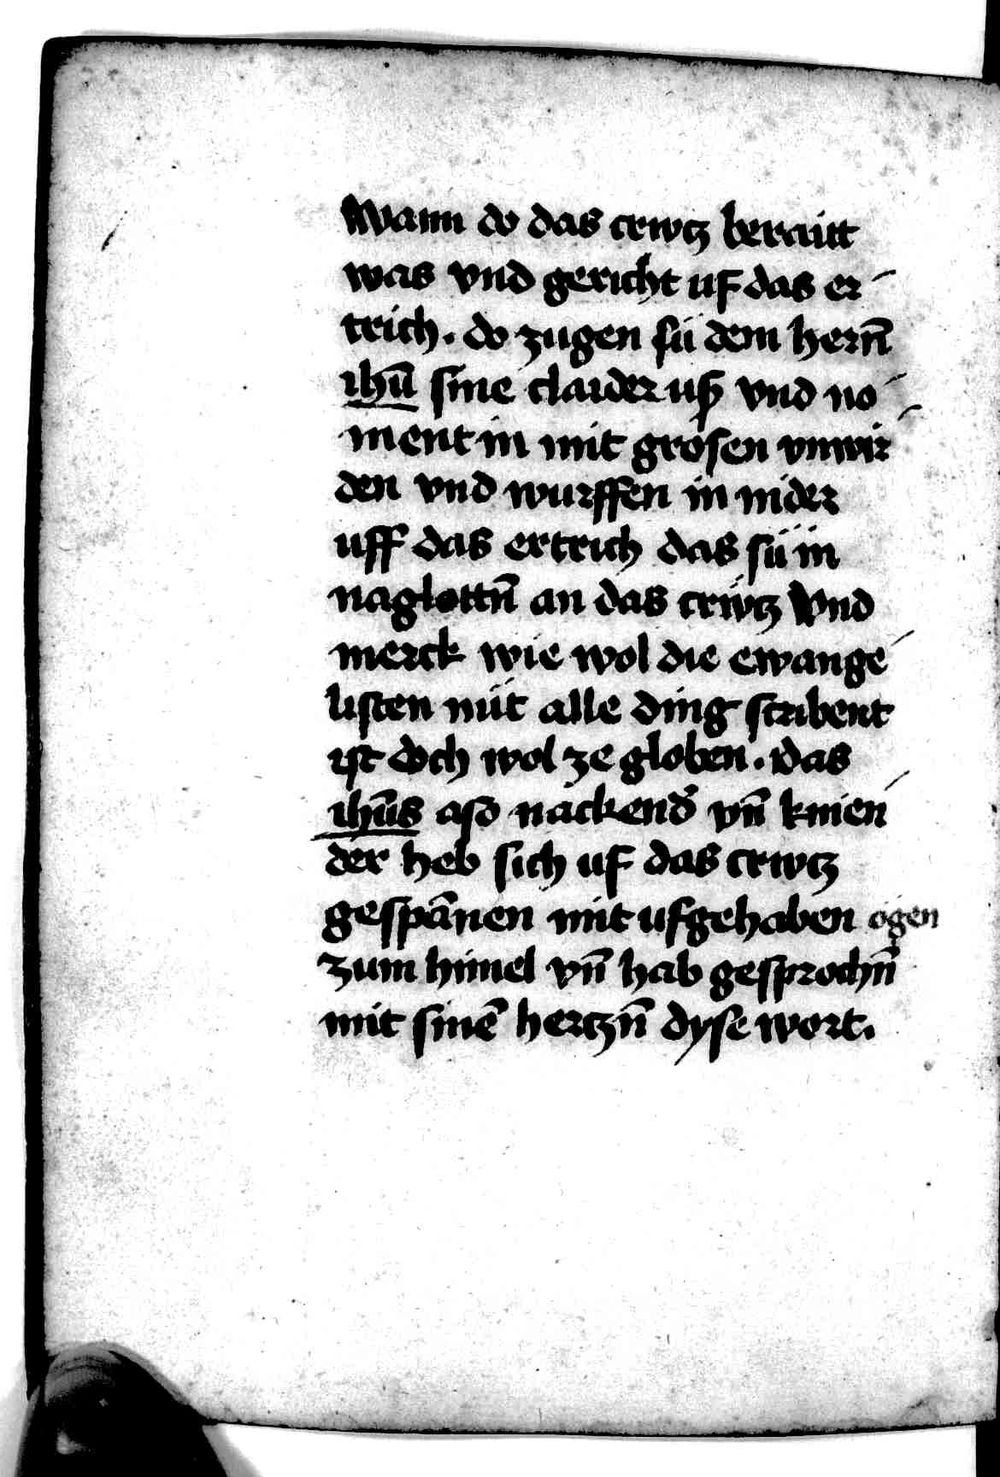 Wann do das crwtz beraitt
was vnd gericht uf das er
trich. do zugen sü dem hern̄
ihū sine claider uß vnd no
ment in mit grosen vnwir
den vnd wurffen in nider
uff das ertrich das sü in
naglottn̄ an das crẃtz Vnd
merck wie wol die ewange
listen nüt alle ding scribent
ist doch wol ze globen. das
ihūs aso nackend vn̄ knien
der heb sich uf das crwtz
gespānen mit ufgehaben ogen
zum himel vn̄ hab gesprochn̄
mit sinē hertzn̄ dyse wort.